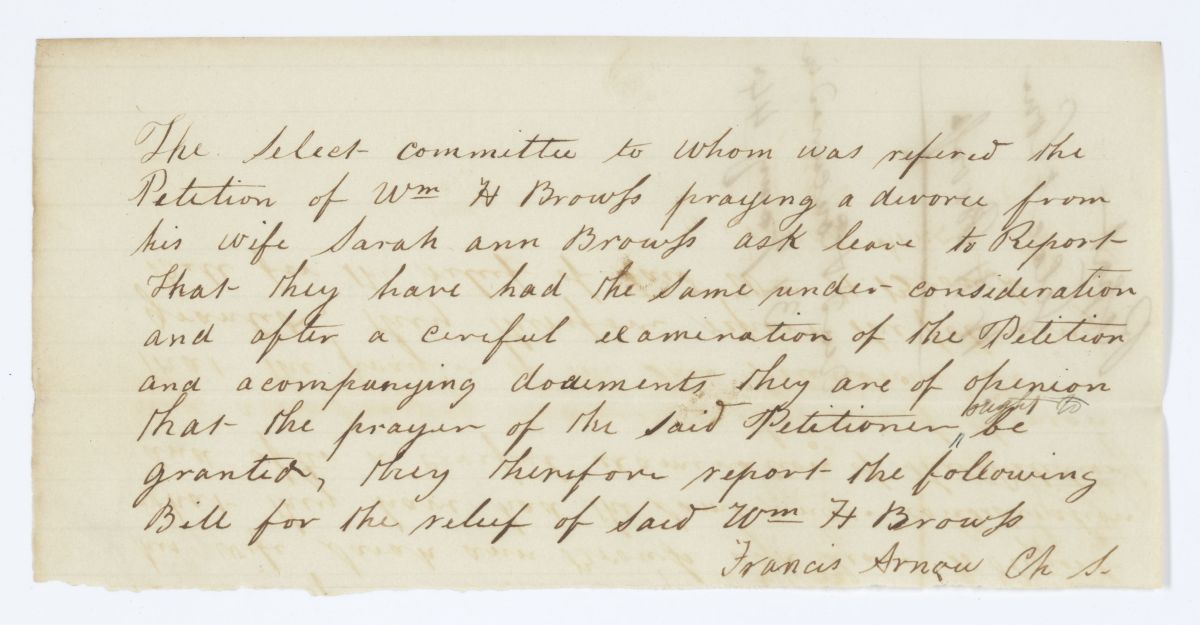 The Select committee to whom was refered the
Petition of Wm H Browss praying a divorce from
his wife Sarah ann Browss ask leave to Report
That they have had the same under consideration
and after a cereful examenation of the Petition
and acompanying documents they are of openion
that the prayer of the said Petitioner ought to be
granted, they therefore report the following
Bill for the relief of said Wm H Browss
Francis Arnow Ch S.